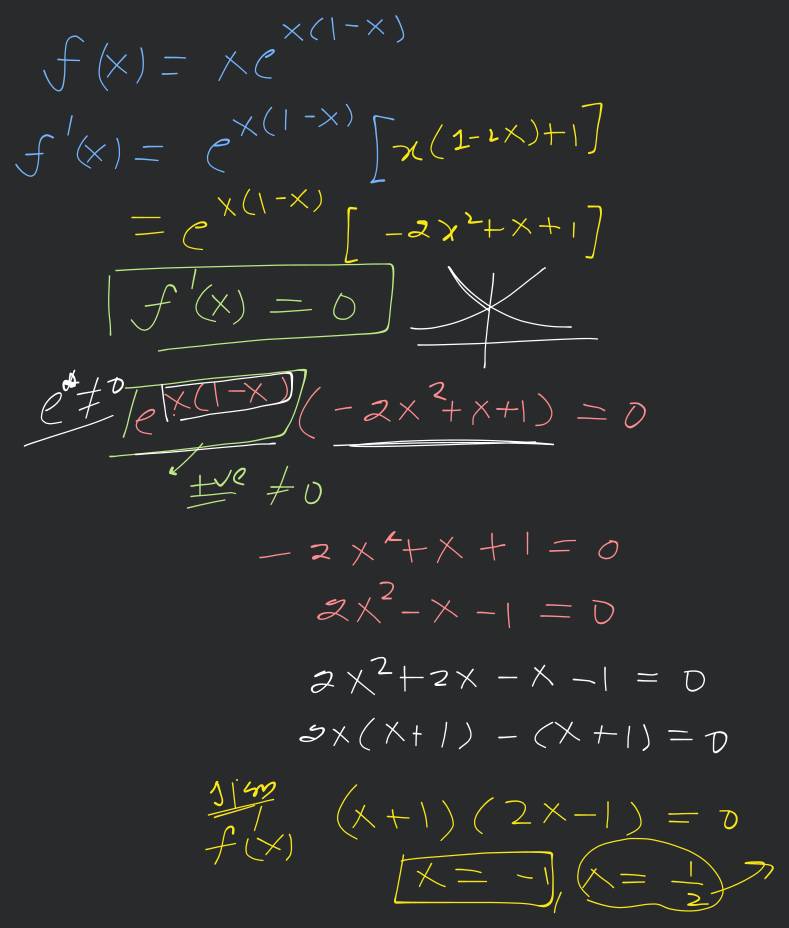 f(x) = xe^{x(1-x)}
f'(x) = e^{x(1-x)} [x(1-2x)+1]
= e^{x(1-x)} [-2x²+x+1]
f'(x) = 0
e^∞ ≠ 0 e^{x(1-x)} (-2x²+x+1) = 0
+ve ≠ 0
-2x²+x+1 = 0
2x²-x-1 = 0
2x²+2x-x-1 = 0
2x(x+1) - (x+1) = 0
sign f'(x) (x+1)(2x-1) = 0
x = -1, x = 1/2